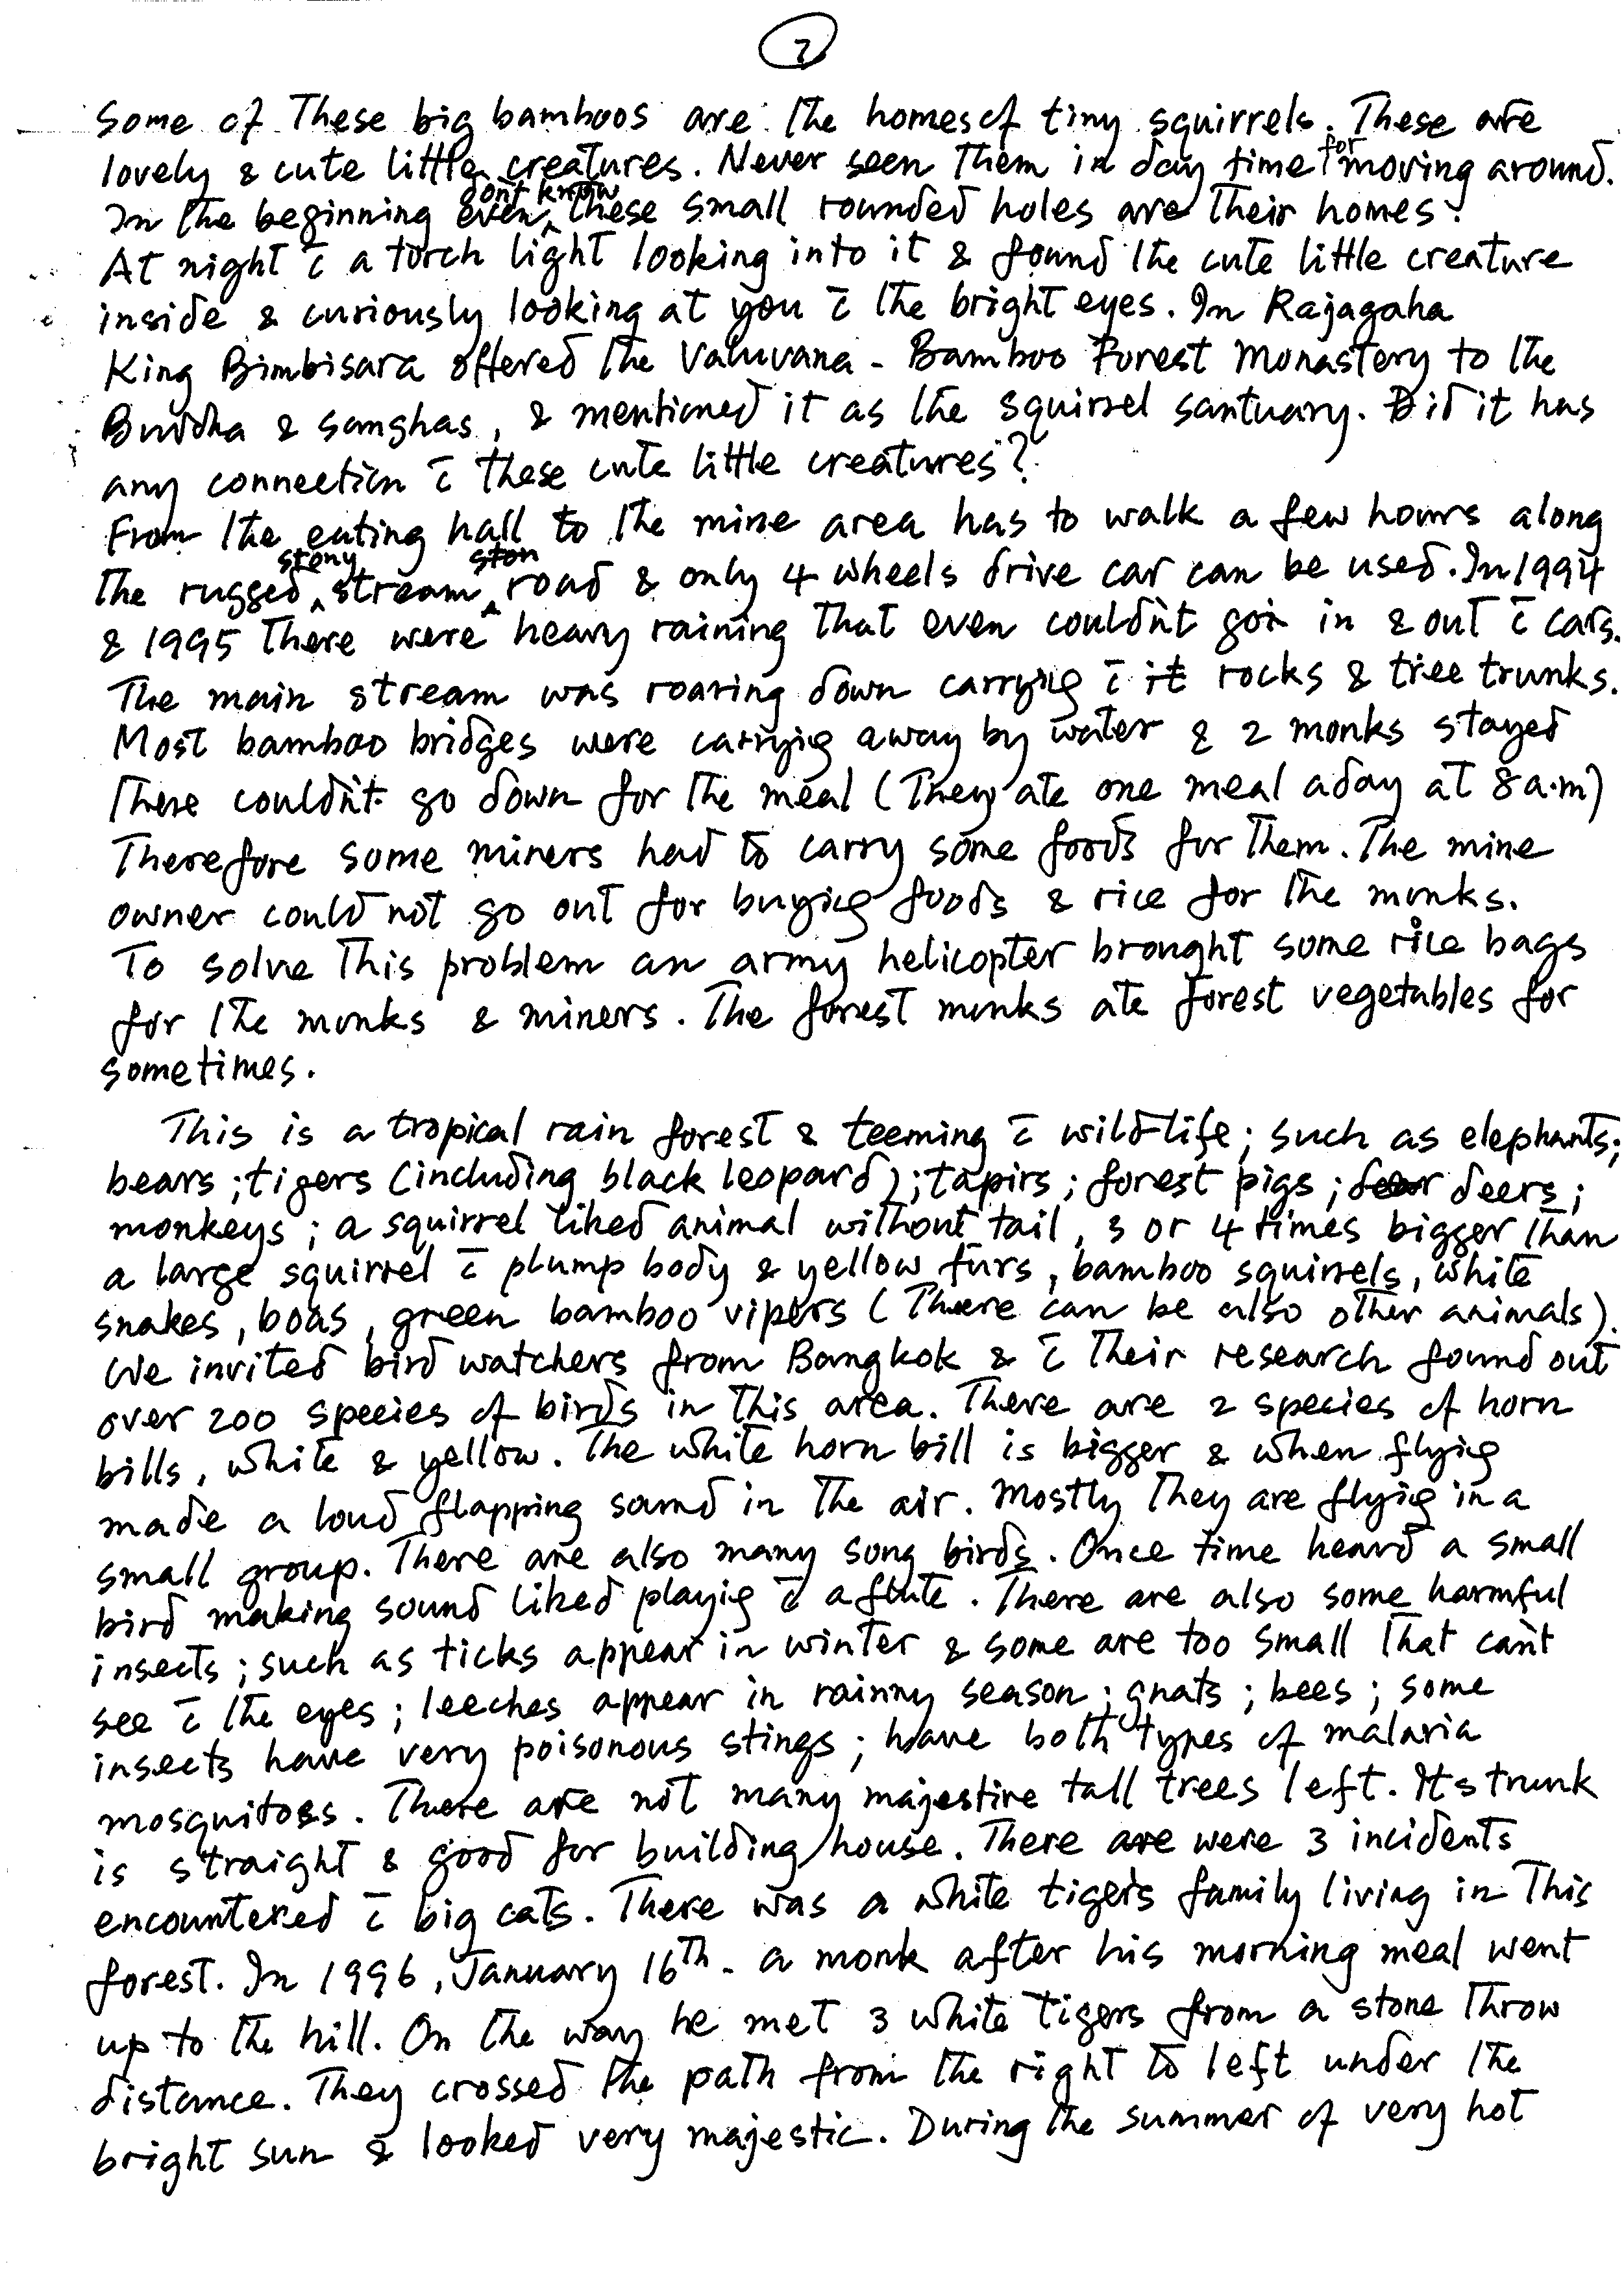 7
Some of These big bamboos are the homes of tiny squirrels. These are
lovely & cute little creatures. Never seen Them in day time for moving around.
In the beginning even don't know these small rounded holes are Their homes.
At night c̄ a torch light looking into it & found the cute little creature
inside & curiously looking at you c̄ the bright eyes. In Rajagaha
King Bimbisara offered the Valuvana - Bamboo Forest Monastery to the
Buddha & sanghas, & mentioned it as the squirrel santuary. Did it has
any connection c̄ these cute little creatures?
From the eating hall to the mine area has to walk a few hours along
the rugged stony stream ston road & only 4 wheels drive car can be used. In 1994
& 1995 There were heavy raining That even couldn't go in & out c̄ cars.
The main stream was roaring down carrying c̄ it rocks & tree trunks.
Most bamboo bridges were carrying away by water & 2 monks stayed
there couldn't go down for the meal (They ate one meal a day at 8 a.m)
Therefore some miners had to carry some foods for Them. The mine
owner could not go out for buying foods & rice for the monks.
To solve This problem an army helicopter brought some rice bags
for the monks & miners. The forest monks ate forest vegetables for
sometimes.
This is a tropical rain forest & teeming c̄ wild-life; such as elephants;
bears; tigers (including black leopard); tapirs; forest pigs; dear deers;
monkeys; a squirrel liked animal without tail, 3 or 4 times bigger than
a large squirrel c̄ plump body & yellow furs, bamboo squirrels, white
snakes, boas, green bamboo vipers (There can be also other animals).
We invited bird watchers from Bangkok & c̄ Their research found out
over 200 species of birds in this area. There are 2 species of horn
bills, white & yellow. The white horn bill is bigger & when flying
made a loud flapping sound in the air. Mostly They are flying in a
small group. There are also many song birds. Once time heard a small
bird making sound liked playing c̄ a flute. There are also some harmful
insects; such as ticks appear in winter & some are too small That can't
see c̄ the eyes; leeches appear in rainny season; gnats; bees; some
insects have very poisonous stings; have both types of malaria
mosquitoes. There are not many majestive tall trees left. Its trunk
is straight & good for building house. There are were 3 incidents
encountered c̄ big cats. There was a white tigers family living in This
forest. In 1996, January 16th - a monk after his morning meal went
up to the hill. On the way he met 3 white tigers from a stone Throw
distance. They crossed the path from the right to left under the
bright sun & looked very majestic. During the summer of very hot